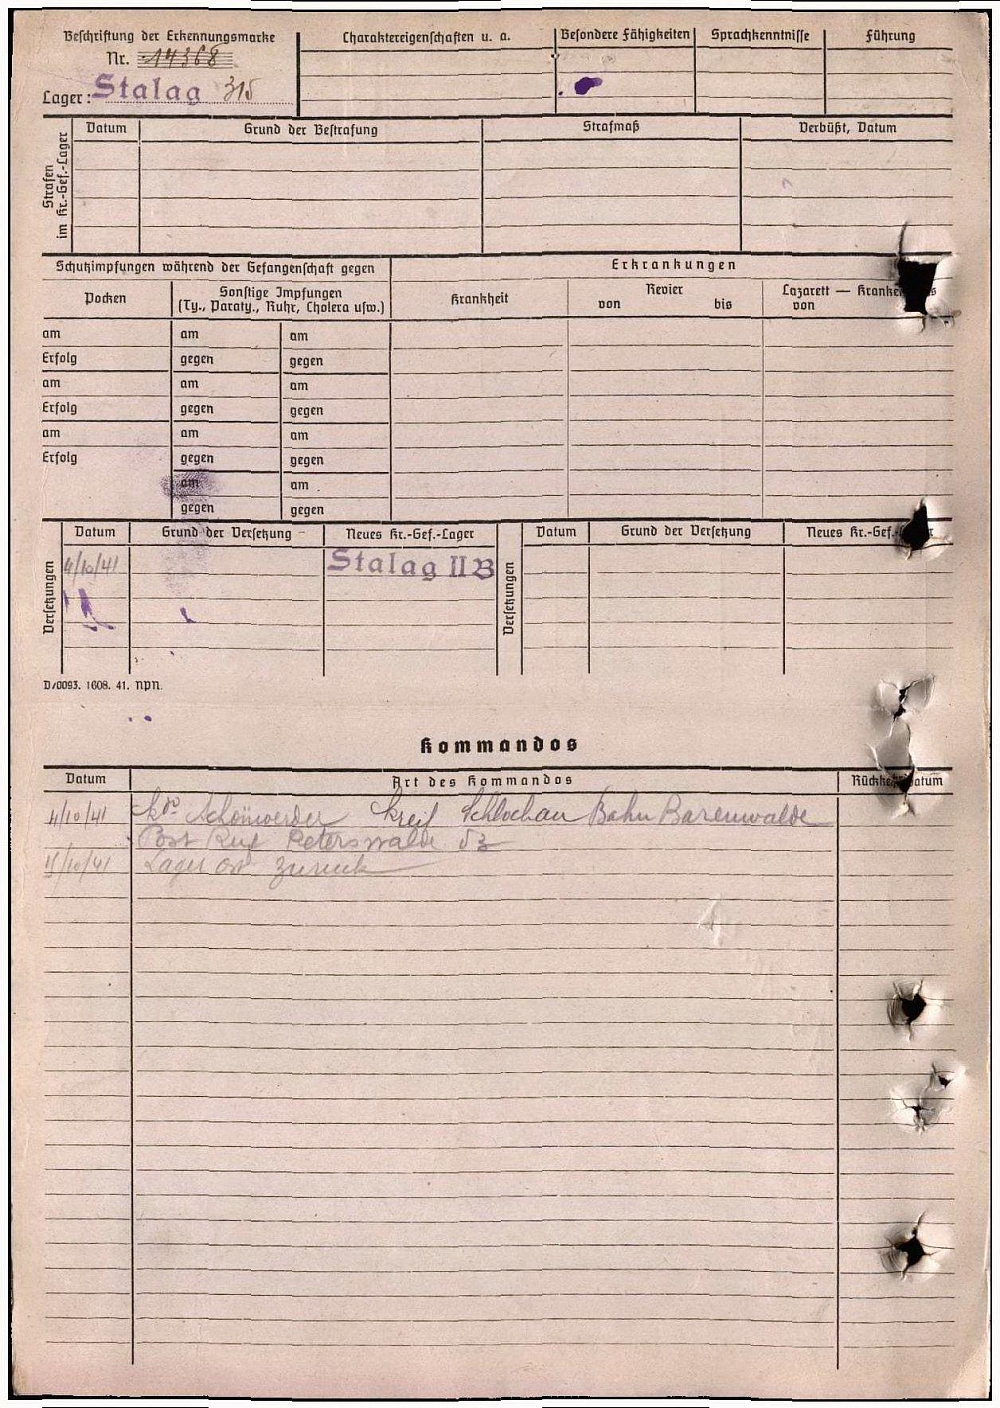 Beschriftung der Erkennungsmarke
Nr. 14368
Lager: Stalag 315
Charaktereigenschaften u. a.
Besondere Fähigkeiten
Sprachkenntnisse
Führung
Strafen im Kr.-Gef.-Lager
Datum
Grund der Bestrafung
Strafmaß
Verbüßt, Datum
Schutzimpfungen während der Gefangenschaft gegen
Erkrankungen
Pocken
Sonstige Impfungen
(Ty., Paraty., Ruhr, Cholera usw.)
Krankheit
Revier
von bis
Lazarett —
von
am am am
Erfolg gegen gegen
am am am
Erfolg gegen gegen
am am am
Erfolg gegen gegen
am am
gegen gegen
Versetzungen
Datum Grund der Versetzung Neues Kr.-Gef.-Lager
4/10/41 Stalag II B
Versetzungen
Datum Grund der Versetzung Neues Kr.-Gef.-
D/0093. 1608. 41. NPN.
Kommandos
Datum Art des Kommandos
4/10/41 Kdo. Schönwerder Kreis Schlochau Bahn Barenwalde
Post Peterswalde
Lager Ost zurück